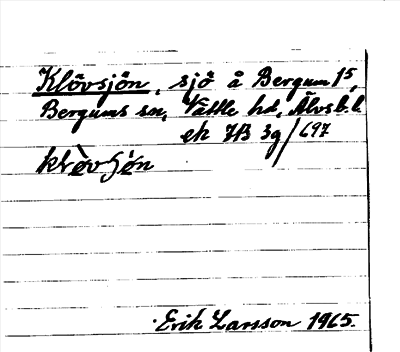 Klövsjön, sjö å Bergum 1⁵,
Bergums sn, Vättle hd, Älvsb. l.
ek 7B 3g/697
klø̀vʃø̀n
Erik Larsson 1965.